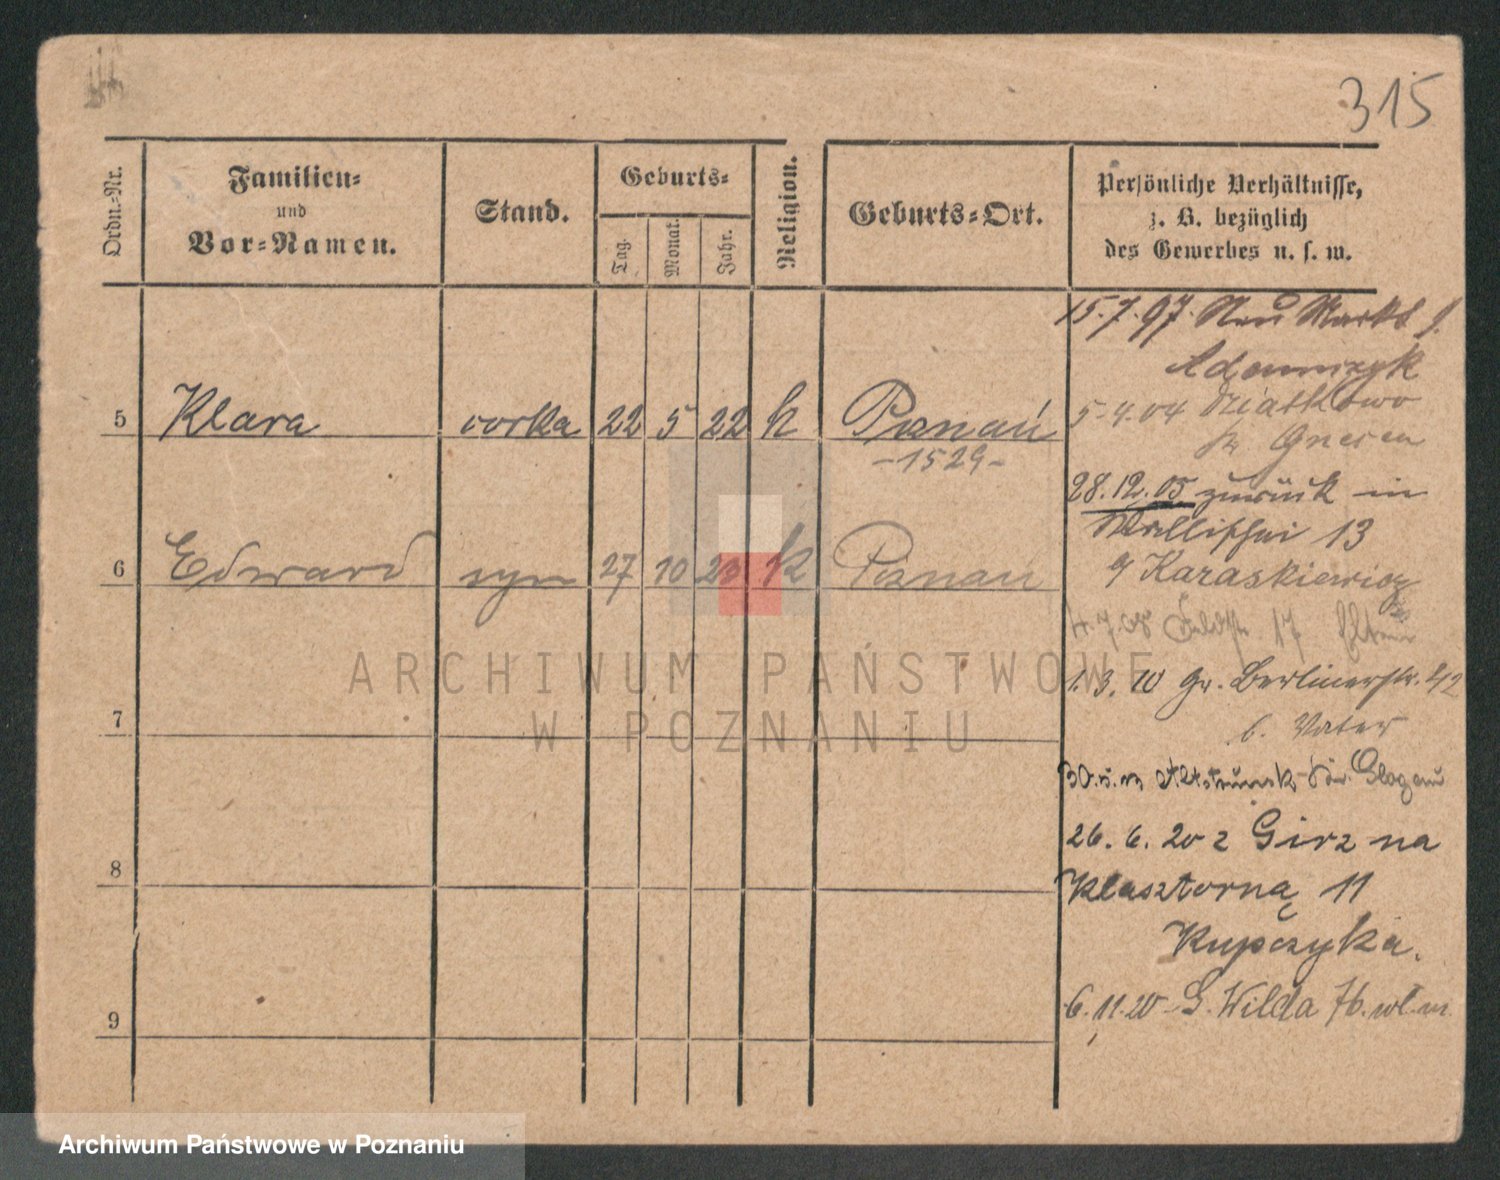 315
Ordn.-Nr.
Familien-
und
Vor-Namen.
Stand.
Geburts-
Tag.
Monat.
Jahr.
Religion.
Geburts-Ort.
Persönliche Verhältnisse,
z. B. bezüglich
des Gewerbes u. s. w.
15.7.97. Neu Markt
5 Klara corka 22 5 22 k Poznań
-1529-
6 Edward syn 27 10 23 k Poznań
7
8
9
5.4.04 Dziatkowo
Gnesen
28.12.05 zurück in
Wallischei 13
Karaskiewicz
4.7.08 17
1.3.10 Gr. Berlinerstr. 42
b. Vater
Glogau
26.6.20 z Girz na
Klasztorną 11
Kupczyka.
6.11.20 G. Wilda 76. wł. m.
ARCHIWUM PAŃSTWOWE
W POZNANIU
Archiwum Państwowe w Poznaniu